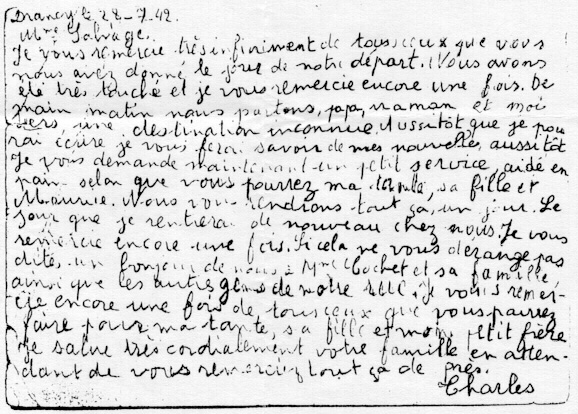 Drancy le 28-7.42.
Mme Salvage.
Je vous remercie très infiniment de tous ceux que vous
nous avez donné le jour de notre départ. Nous avons
été très touché et je vous remercie encore une fois. De
main matin nous partons, papa, maman et moi
vers une destination inconnue. Aussitôt que je pou
rai écrire je vous ferai savoir de mes nouvelles, aussitôt
Je vous demande maintenant un petit service, aidé en
pain selon que vous pourrez ma tante, sa fille et
Maurice. Nous vous rendrons tout ça, un jour. Le
jour que je rentrerai de nouveau chez nous. Je vous
remercie encore une fois. Si cela ne vous dérange pas
dites un bonjour de nous à Mme Cochet et sa famille,
ainsi que les autres gens de notre rue. Je vous remer-
cie encore une fois de tous ceux que vous pourrez
faire pour ma tante, sa fille et mon petit frère
Je salue très cordialement votre famille en atten-
dant de vous remerciez tout ça de près.
Charles